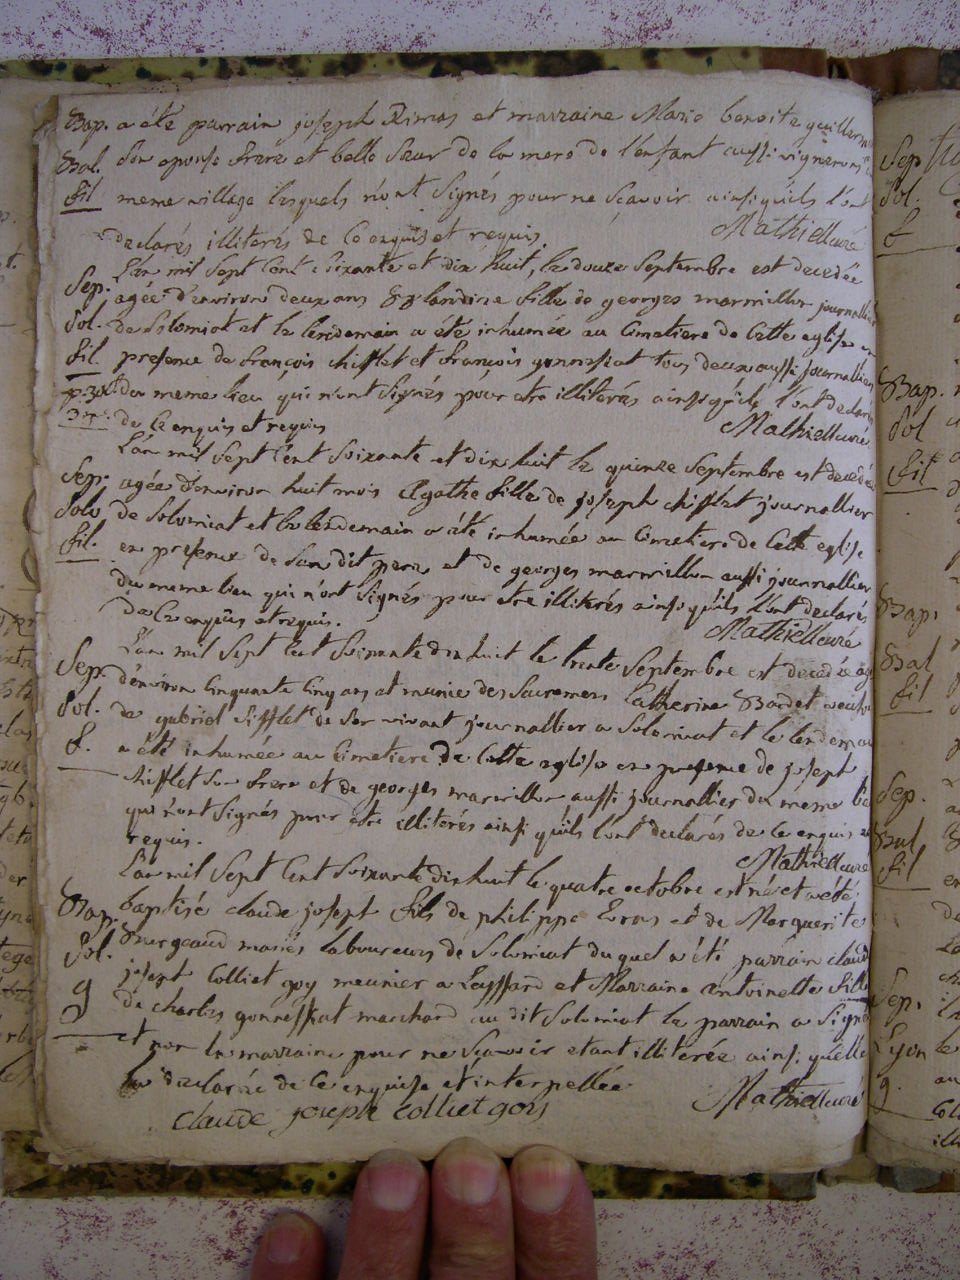 Bap. a été parrain joseph Rimas et marraine Marie benoite guillerm
Bal. Son epouse frere et belle Sœur de la mere de l'enfant aussi vignerons
fil meme village lesquels n'ont Signés pour ne Sçavoir ainsi qu'ils l'ont
declarés illiterés de ce enquis et requis. Mathieu curé
L'an mil Sept Cent Soixante et dix huit, le douze Septembre est decedée
Sep. agée d'environ deux ans Blandine fille de georges marmillon journallier
Sol. de Solomiat et le lendemain a été inhumée au Cimetiere de Cette eglise en
fil presence de françois chifflet et françois gonnessiat tous deux aussi journalliers
du meme lieu qui n'ont Signés pour etre illiterés ainsi qu'ils l'ont declarés
de ce enquis et requis Mathieu curé
L'an mil Sept Cent Soixante et dix huit le quinze Septembre est decedée
Sep. agée d'environ huit mois Agathe fille de joseph chifflet journallier
Solo de Solomiat et le lendemain a été inhumée au Cimetiere de Cette eglise
fil. en presence de Son dit pere et de georges marmillon aussi journallier
du meme lieu qui n'ont Signés pour etre illiterés ainsi qu'ils l'ont declarés
de ce enquis et requis. Mathieu curé
L'an mil Sept Cent Soixante dix huit le trente Septembre est decedée ag
Sep. d'environ Cinquante Cinq ans et munie des Sacremens Catherine Bardet veuve
Sol. de gabriel Sifflet de Son vivant journallier a Solomiat et le lendemain
f. a été inhumée au Cimetiere de Cette eglise en presence de joseph
chifflet Son frere et de georges marmillon aussi journallier du meme lie
qui n'ont Signés pour etre illiterés ainsi qu'ils l'ont declarés de ce enquis et
requis. Mathieu curé
L'an mil Sept Cent Soixante dix huit le quatre octobre est né et a été
Bap. baptisé claude joseph fils de philippe Eras et de Marguerite
Sol. mariés laboureurs de Solomiat duquel a été parrain claude
g joseph Colliet goy meunier a Leyssard et Marraine antoinette fille
de charles gonnessiat marchand au dit Solomiat le parrain a Signé
et non la marraine pour ne Sçavoir etant illiterée ainsi qu'elle
l'a declarée de ce enquise et interpellée Mathieu curé
claude joseph colliet goy